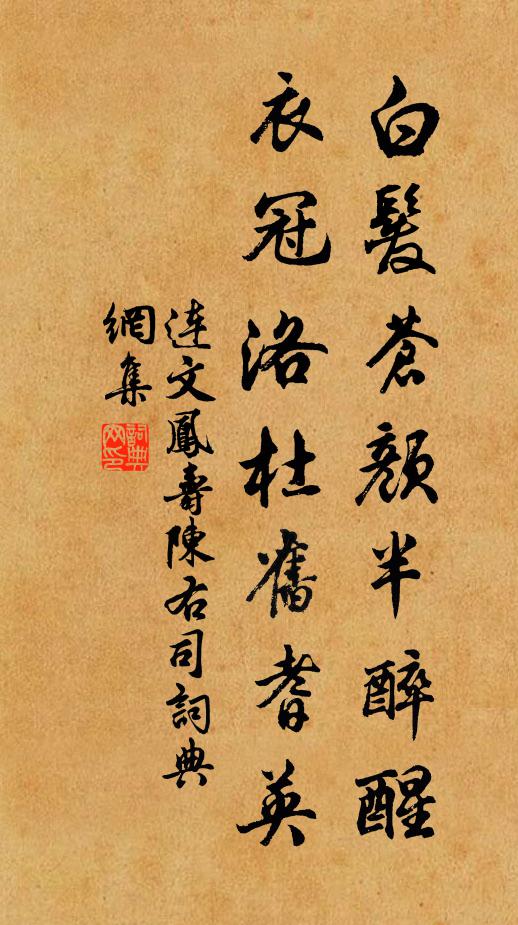 白髮蒼顏半醉醒
衣冠洛杜舊耆英
連文鳳壽陳右司詞典
網集
詞典
网印